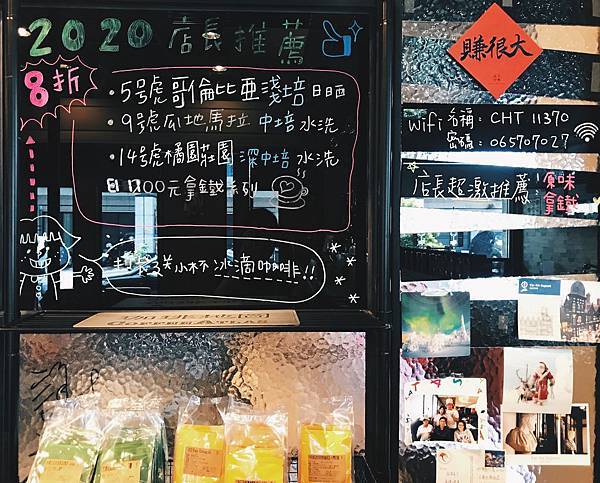 2020 店長推薦
8折
·5号虎哥倫比亞淺培 日晒
·9号虎瓜地馬拉 中培 水洗
·14号虎橘園莊園 深中培 水洗
100元拿鐵系列
送小杯冰滴咖啡!!
賺很大
wifi 名稱：CHT 11370
密碼：065707027
店長超激推薦！原味拿鐵
咖啡地圖
COFFEE ATLAS